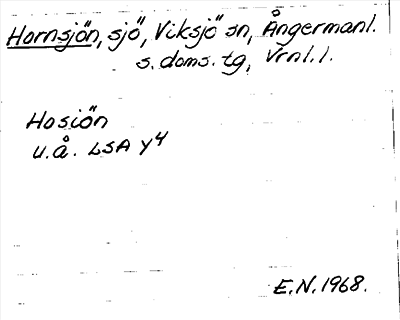 Hornsjön, sjö, Viksjö sn, Ångermanl.
s. doms. tg, Vrnl. l.
Hosiön
u.å. LSA Y4
E.N. 1968.